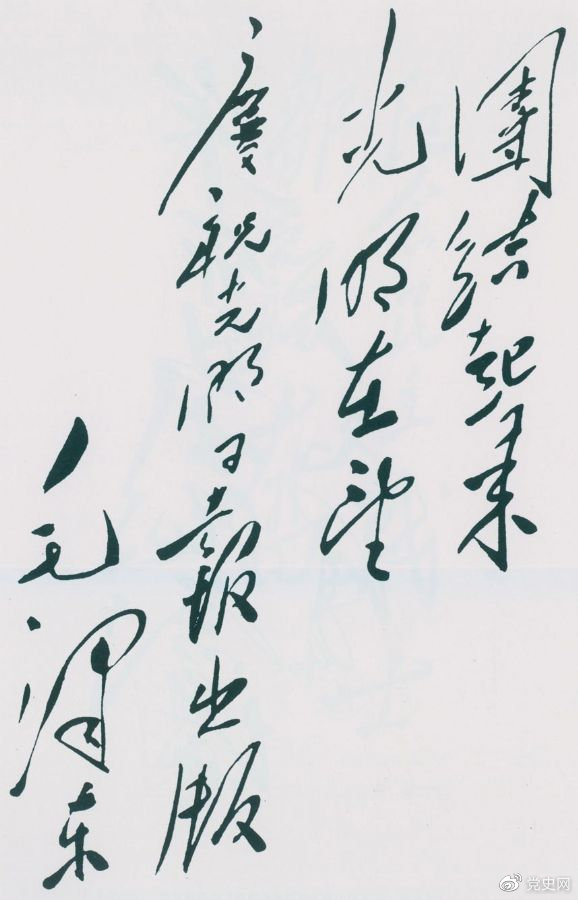 團结起来
光明在望
慶祝光明日報出版
毛泽东
党史网